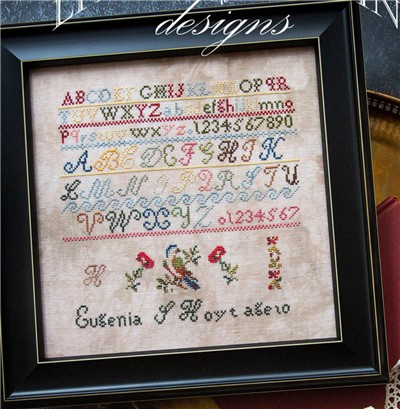 designs
ABCDEFGHIJKLMNOPQR
TUVWXYZabcdefghiklmno
pqrstuvwxyz.1234567890
ABCDEFGHIK
LMNOPQRSTU
VWXYZ.01234567
H
Eugenia S Hoyt age10